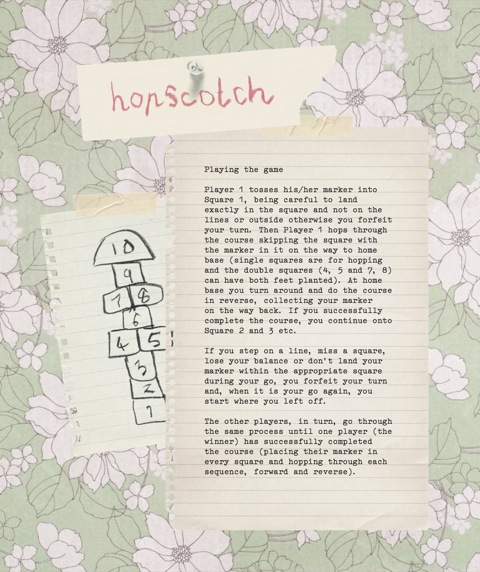 hopscotch
Playing the game
Player 1 tosses his/her marker into
Square 1, being careful to land
exactly in the square and not on the
lines or outside otherwise you forfeit
your turn. Then Player 1 hops through
the course skipping the square with
the marker in it on the way to home
base (single squares are for hopping
and the double squares (4, 5 and 7, 8)
can have both feet planted). At home
base you turn around and do the course
in reverse, collecting your marker
on the way back. If you successfully
complete the course, you continue onto
Square 2 and 3 etc.
If you step on a line, miss a square,
lose your balance or don't land your
marker within the appropriate square
during your go, you forfeit your turn
and, when it is your go again, you
start where you left off.
The other players, in turn, go through
the same process until one player (the
winner) has successfully completed
the course (placing their marker in
every square and hopping through each
sequence, forward and reverse).
10
9
7 8
6
4 5
3
2
1